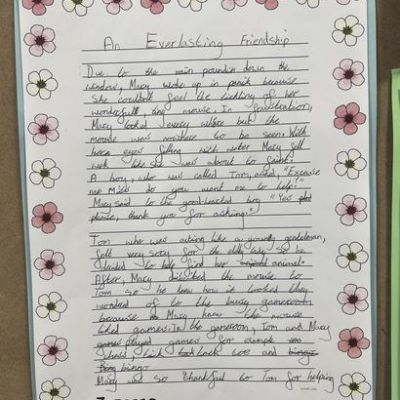 An Everlasting Friendship
Due to the rain poundin down the
window, Macy woke up in panick because
she couldn't feel the tickling of her
wonderfull, tiny mouse. In fusstration,
Macy looked every where but the
mouse was nowhere to be seen. With
here eyes filling with water Macy felt
weak like she was about to faint.
A boy, who was called Tom, asked, "Excuse
me Miss do you want me to help!"
Macy said to the good-looking boy "Yes
phease, thank you for asking!"
Tom who was acting like a young gentleman,
fell very sorry for the elderly so he
decided to help find her animal.
After, Macy discribed the mouse to
Tom so he knew how it looked they
wondred of to the busy gameroom
because Macy knew the mouse
liked games. In the gameroom, Tom and Macy
played games for example
chess, tick tack toe and
bingo
Macy was so thankful to Tom for helping